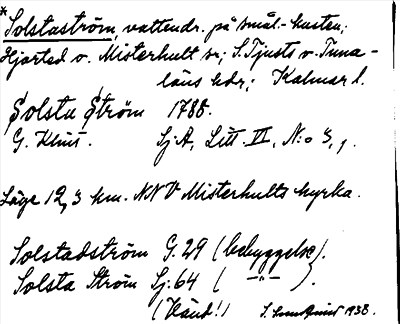 *Solstaström, vattendr. på smål.-kusten;
Hjorted o. Misterhult sn; S. Tjusts o. Tuna-
läns hdr; Kalmar l.
Solsta Ström 1788.
G. Klint. Sj.A, Litt. VI, N:o 3,
Läge 12,3 km. NNV Misterhults kyrka.
Solstadström G. 29 (bebyggelse).
Solsta Ström Sj. 64 ( -"- ).
(Vänd!) 1938.